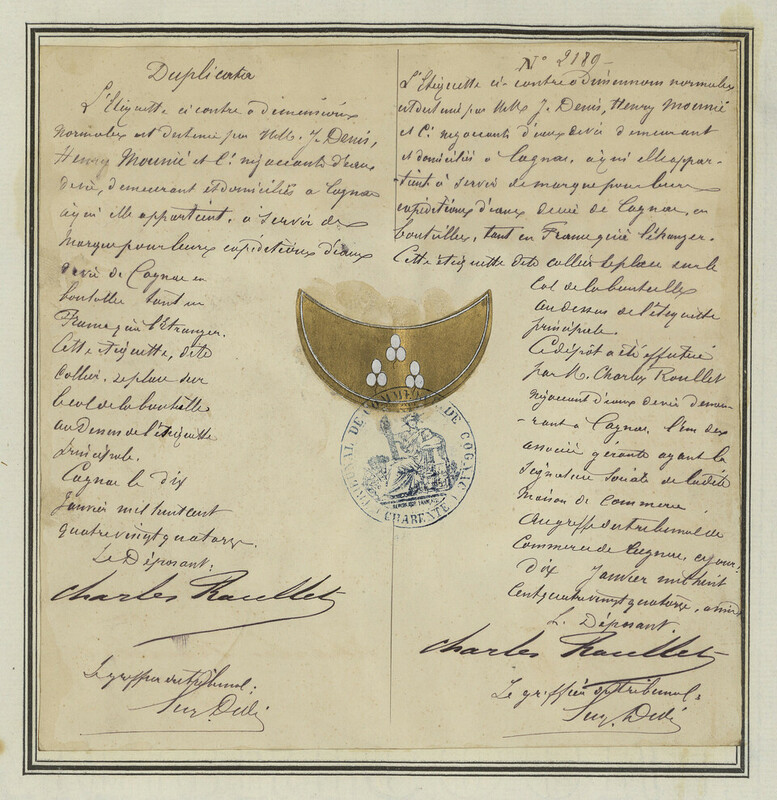 Duplicata
L'Etiquette ci contre à dimensions
normales est destinée par MM. J. Denis,
Henry Mounié et Cie négociants d'eaux
de vie, demeurant et domiciliés à Cognac
à qui elle appartient, à servir de
marque pour leurs expéditions d'eaux
de vie de Cognac en
bouteilles tant en
France qu'à l'Etranger.
Cette étiquette, dite
collier, se place sur
le col de la bouteille
au dessus de l'étiquette
principale.
Cognac le dix
Janvier mil huit cent
quatre vingt quatorze.
Le Déposant:
Charles Roullet
Le greffier du tribunal:
N° 2189
L'Etiquette ci-contre à dimensions normales
est destinée par MM. J. Denis, Henry Mounié
et Cie négociants d'eaux de vie demeurant
et domiciliés à Cognac, à qui elle appar-
tient à servir de marque pour leurs
expéditions d'eaux de vie de Cognac, en
bouteilles, tant en France qu'à l'étranger.
Cette étiquette dite collier se place sur le
col de la bouteille
au dessus de l'étiquette
principale.
Ce dépôt a été effectué
par M. Charles Roullet
négociant d'eaux de vie demeu-
rant à Cognac, l'un des
associés gérants ayant la
signature sociale de la dite
maison de commerce
au greffe du tribunal de
Commerce de Cognac, ce jour:
dix Janvier mil huit
cent quatre vingt quatorze,
L. Déposant
Charles Roullet
Le greffier du tribunal:
TRIBUNAL DE COMMERCE DE COGNAC
RÉPUBLIQUE FRANÇAISE
(CHARENTE)